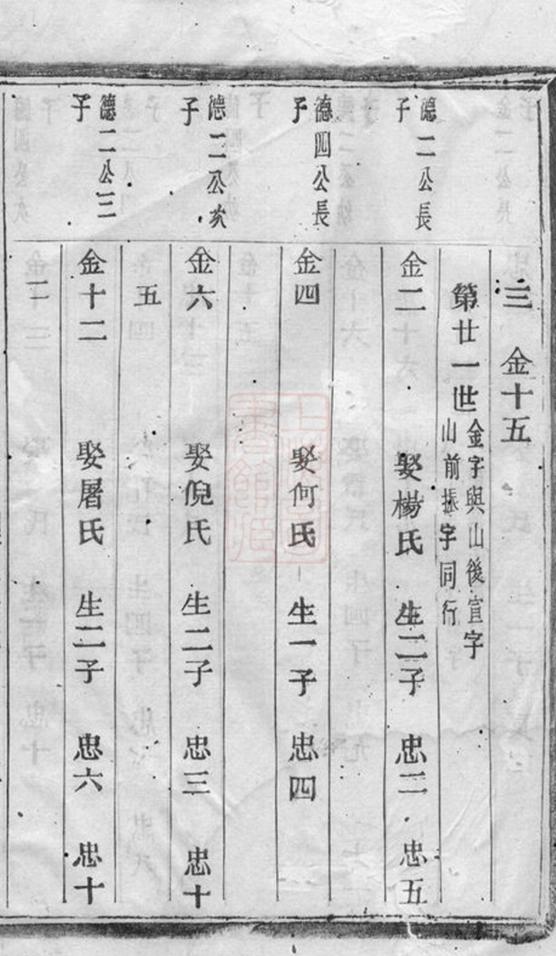 三 金十五
第廿一世 金字與山後宜字
山前振字同行
德二公長
子
金二 娶楊氏 生二子 忠二 忠五
德四公長
子
金四 娶何氏 生一子 忠四
德二公次
子
金六 娶倪氏 生二子 忠三 忠十
五
德二公三
子
金十二 娶屠氏 生二子 忠六 忠十
一